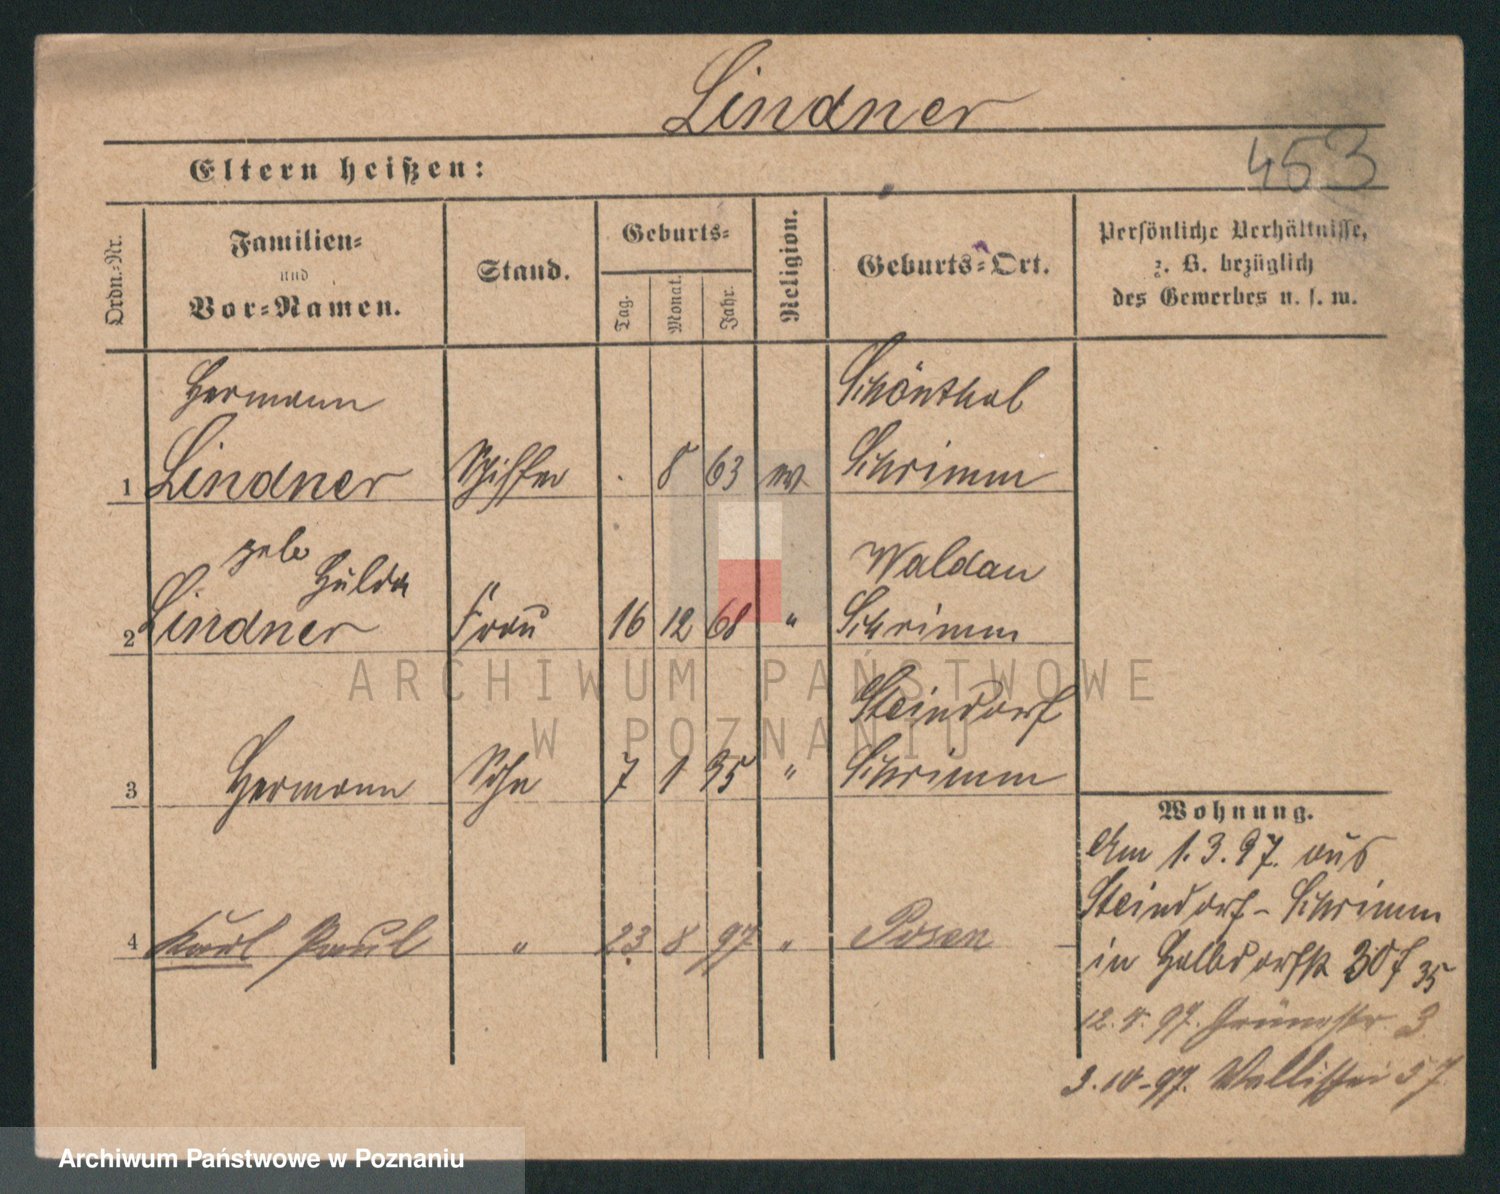 Lindner
453
Eltern heißen:
Ordn.-Nr.
Familien-
und
Vor-Namen.
Stand.
Geburts-
Tag.
Monat.
Jahr.
Religion.
Geburts-Ort.
Persönliche Verhältnisse,
z. B. bezüglich
des Gewerbes u. s. w.
Hermann Schönthal
1 Lindner Schiffer . 8 63 ev. Schrimm
geb Hulda Waldau
2 Lindner Frau 16 12 68 " Schrimm
Steindorf
3 Hermann Sohn 7 1 95 " Schrimm
4 Karl Paul " 23 8 97 " Posen
Wohnung.
Am 1.3.97. aus
Steindorf - Schrimm
in Halbdorfstr 30 35
12. 97. 3
3.10-97. Wallischei 57
ARCHIWUM PAŃSTWOWE
W POZNANIU
Archiwum Państwowe w Poznaniu